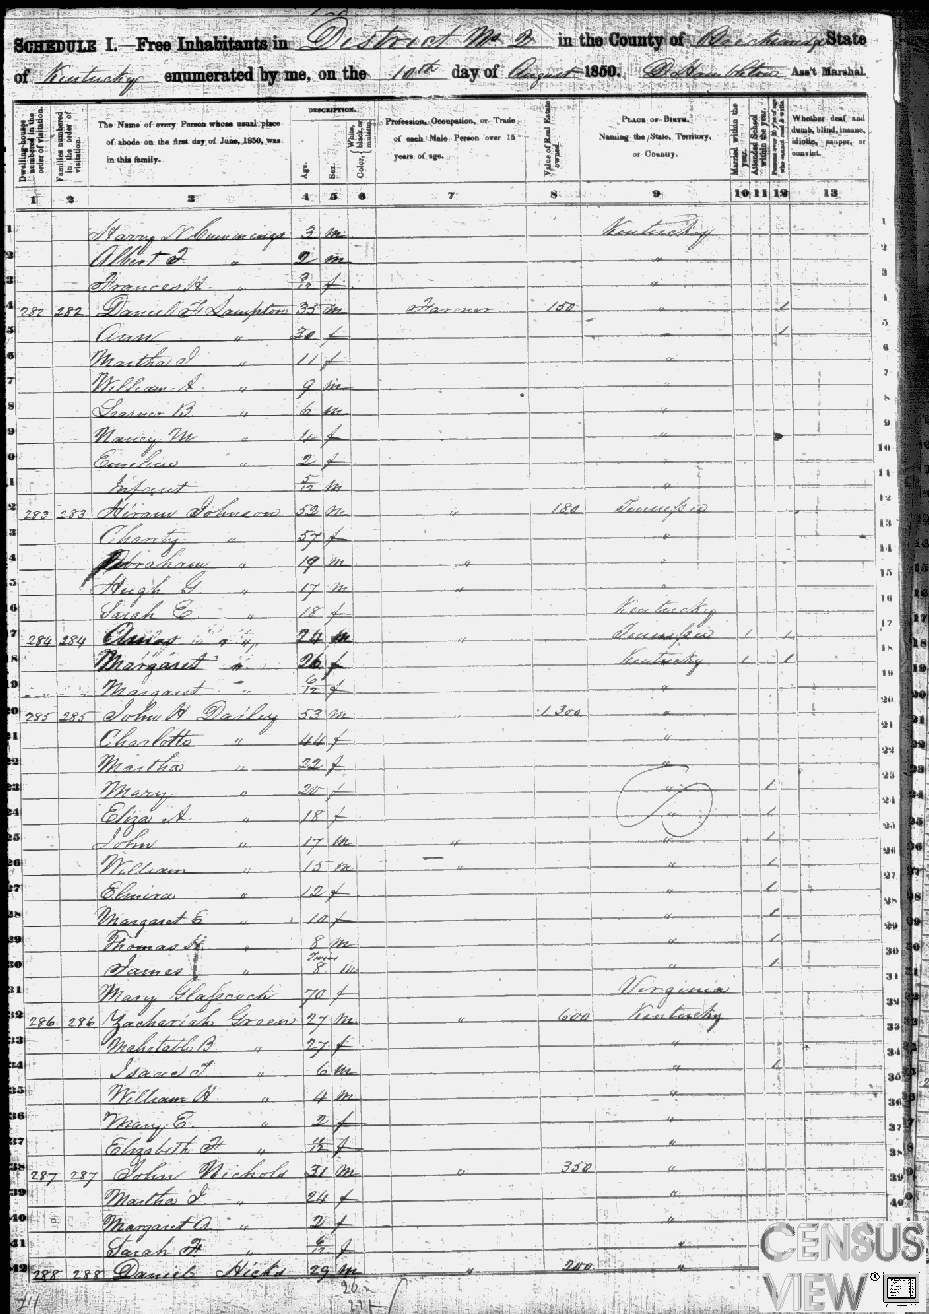 SCHEDULE I.—Free Inhabitants in District No 2 in the County of Breckinridge State
of Kentucky enumerated by me, on the 10th day of August 1850. Ass't Marshal.
Dwelling-houses numbered in the order of visitation.
Families numbered in the order of visitation.
The Name of every Person whose usual place of abode on the first day of June, 1850, was in this family.
DESCRIPTION.
Age.
Sex.
Color, White, black, or mulatto.
Profession, Occupation, or Trade of each Male Person over 15 years of age.
Value of Real Estate owned.
PLACE OF BIRTH. Naming the State, Territory, or Country.
Married within the year.
Attended School within the year.
Persons over 20 y'rs of age who cannot read & write.
Whether deaf and dumb, blind, insane, idiotic, pauper, or convict.
1 2 3 4 5 6 7 8 9 10 11 12 13
1 Harry N Cummings 3 m Kentucky 1
2 Albert F " 2 m " 2
3 Frances H " f " 3
4 282 282 Daniel F Lampton 35 m Farmer 150 " 1 4
5 Ann " 30 f " 1 5
6 Martha J " 11 f " 6
7 William A " 9 m " 7
8 B " 6 m " 8
9 Nancy M " f " 9
10 Emeline " 2 f " 10
11 Infant 5/12 m " 11
12 283 283 Hiram Johnson 52 m " 180 Tennessee 12
13 Charity " 57 f " 13
14 Abraham " 19 m " " 14
15 Hugh G " 17 m " " 15
16 Sarah E " 18 f Kentucky 16
17 284 284 " 24 m " Tennessee 1 1 17
18 Margaret " 26 f Kentucky 1 1 18
19 Margaret " 6/12 f " 19
20 285 285 John H Dailey 53 m 1300 " 20
21 Charlotte " 44 f " 21
22 Martha " 22 f " 22
23 Mary " 20 f " 1 23
24 Eliza A " 18 f " 1 24
25 John " 17 m " " 1 25
26 William " 15 m " " 1 26
27 Elmira " 12 f " 1 27
28 Margaret E " 10 f " 1 28
29 Thomas H " 8 m " 1 29
30 James " Twins 8 m " 1 30
31 Mary Glasscock 70 f Virginia 31
32 286 286 Zachariah Green 27 m " 600 Kentucky 32
33 Mehetable B " 27 f " 33
34 Isaac T " 6 m " 1 34
35 William H " 4 m " 35
36 Mary E " 2 f " 36
37 Elizabeth F " f " 37
38 287 287 John Nichols 31 m " 350 " 38
39 Martha J " 24 f " 39
40 Margaret A " 2 f " 40
41 Sarah F " 6/12 f "
42 288 288 Daniel Hicks 29 m " 200 "
CENSUS
VIEW®